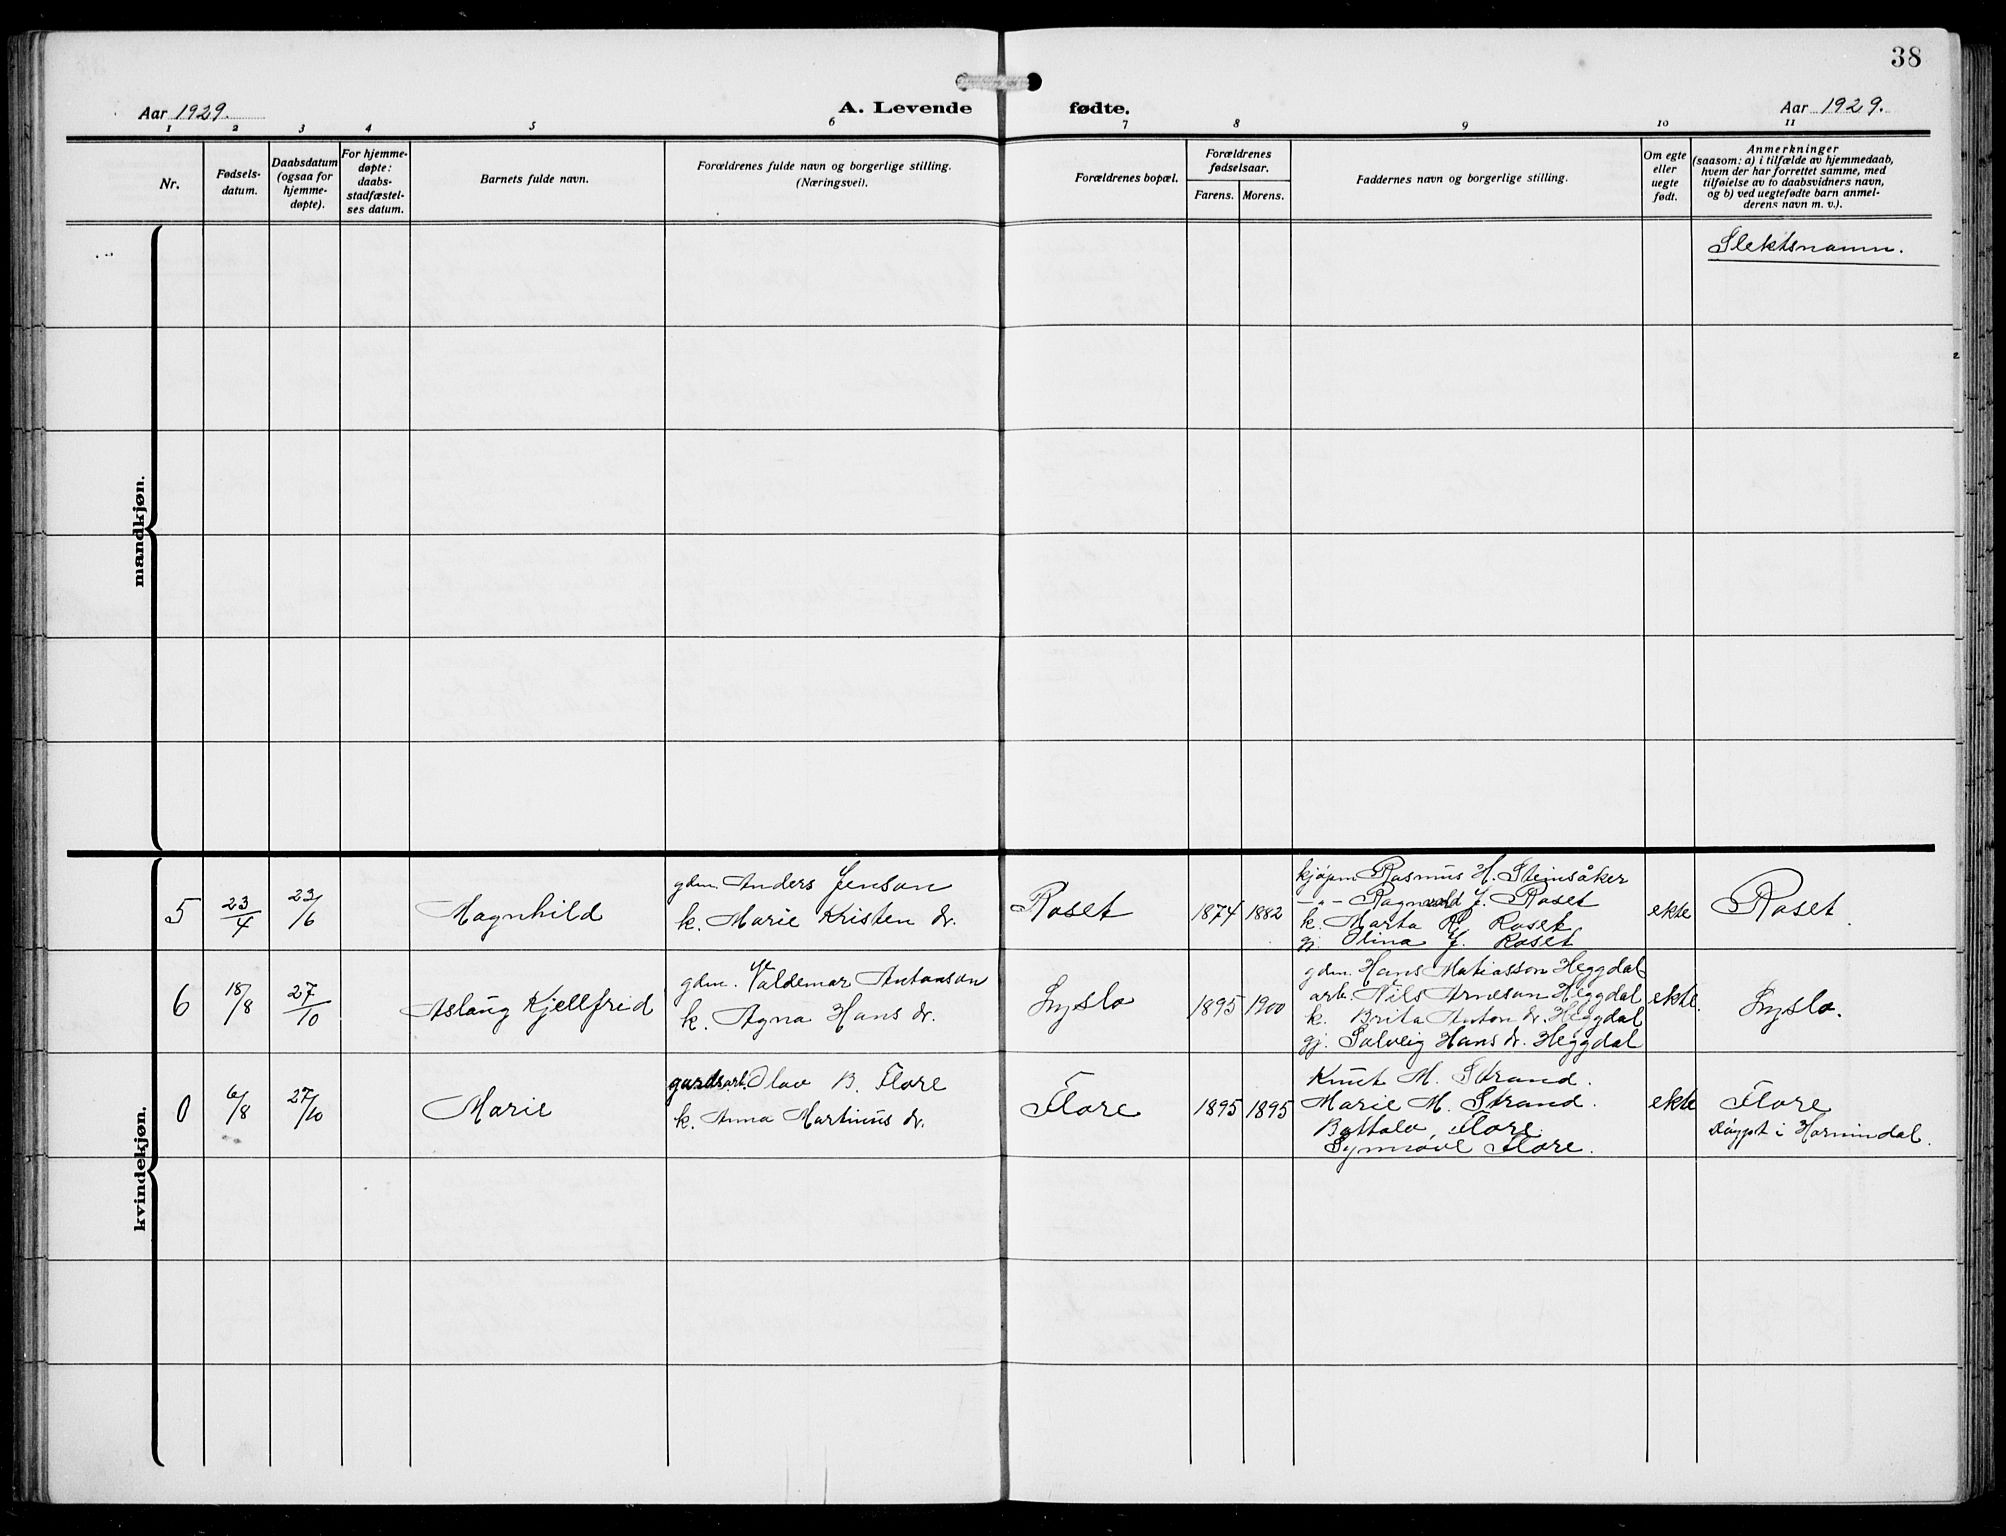 38
Aar 1929.
A. Levende fødte.
Aar 1929.
1 2 3 4 5 6 7 8 9 10 11
Nr.
Fødsels-
datum.
Daabsdatum
(ogsaa for
hjemme-
døpte).
For hjemme-
døpte:
daabs-
stadfæstel-
ses datum.
Barnets fulde navn.
Forældrenes fulde navn og borgerlige stilling.
(Næringsvei).
Forældrenes bopæl.
Forældrenes
fødselsaar.
Farens. Morens.
Faddernes navn og borgerlige stilling.
Om egte
eller
uegte
født.
Anmerkninger
(saasom: a) i tilfælde av hjemmedaab,
hvem der har forrettet samme, med
tilføielse av to daabsvidners navn,
og b) ved uegtefødte barn anmel-
derens navn m. v.).
Slektsnamn.
mandkjøn.
kvindekjøn.
5 23/4 23/6 Magnhild
gdm. Anders Jenson
k. Marie Kristen dr.
Roset 1874 1882
kjøpm Rasmus H. Steinsåker
-"- Ragnvald J. Roset
k. Marta R. Roset
gj. Olina J. Roset
ekte Roset.
6 18/8 27/10 Aslaug Kjellfrid
gdm. Valdemar Antonson
k. Agna Hans dr.
Lyslo 1895 1900
gdm. Hans Matiasson Heggdal
arb. Nils Arneson Heggdal
k. Brita Anton dr. Heggdal
gj. Solveig Hans dr. Heggdal
ekte. Lyslo.
0 6/8 27/10 Marie
gardsarb. Olav B. Flore
k. Anna Martinus dr.
Flore 1895 1895
Knut M. Strand.
Marie M. Strand.
Bottolv Flore.
Synnøve Flore.
ekte Flore
Døypt i Hornindal.